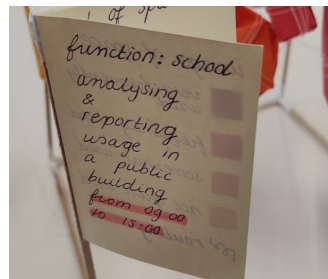 of spa
function: school
analysing
&
reporting
usage in
a public
building
from 09 00
to 15:00